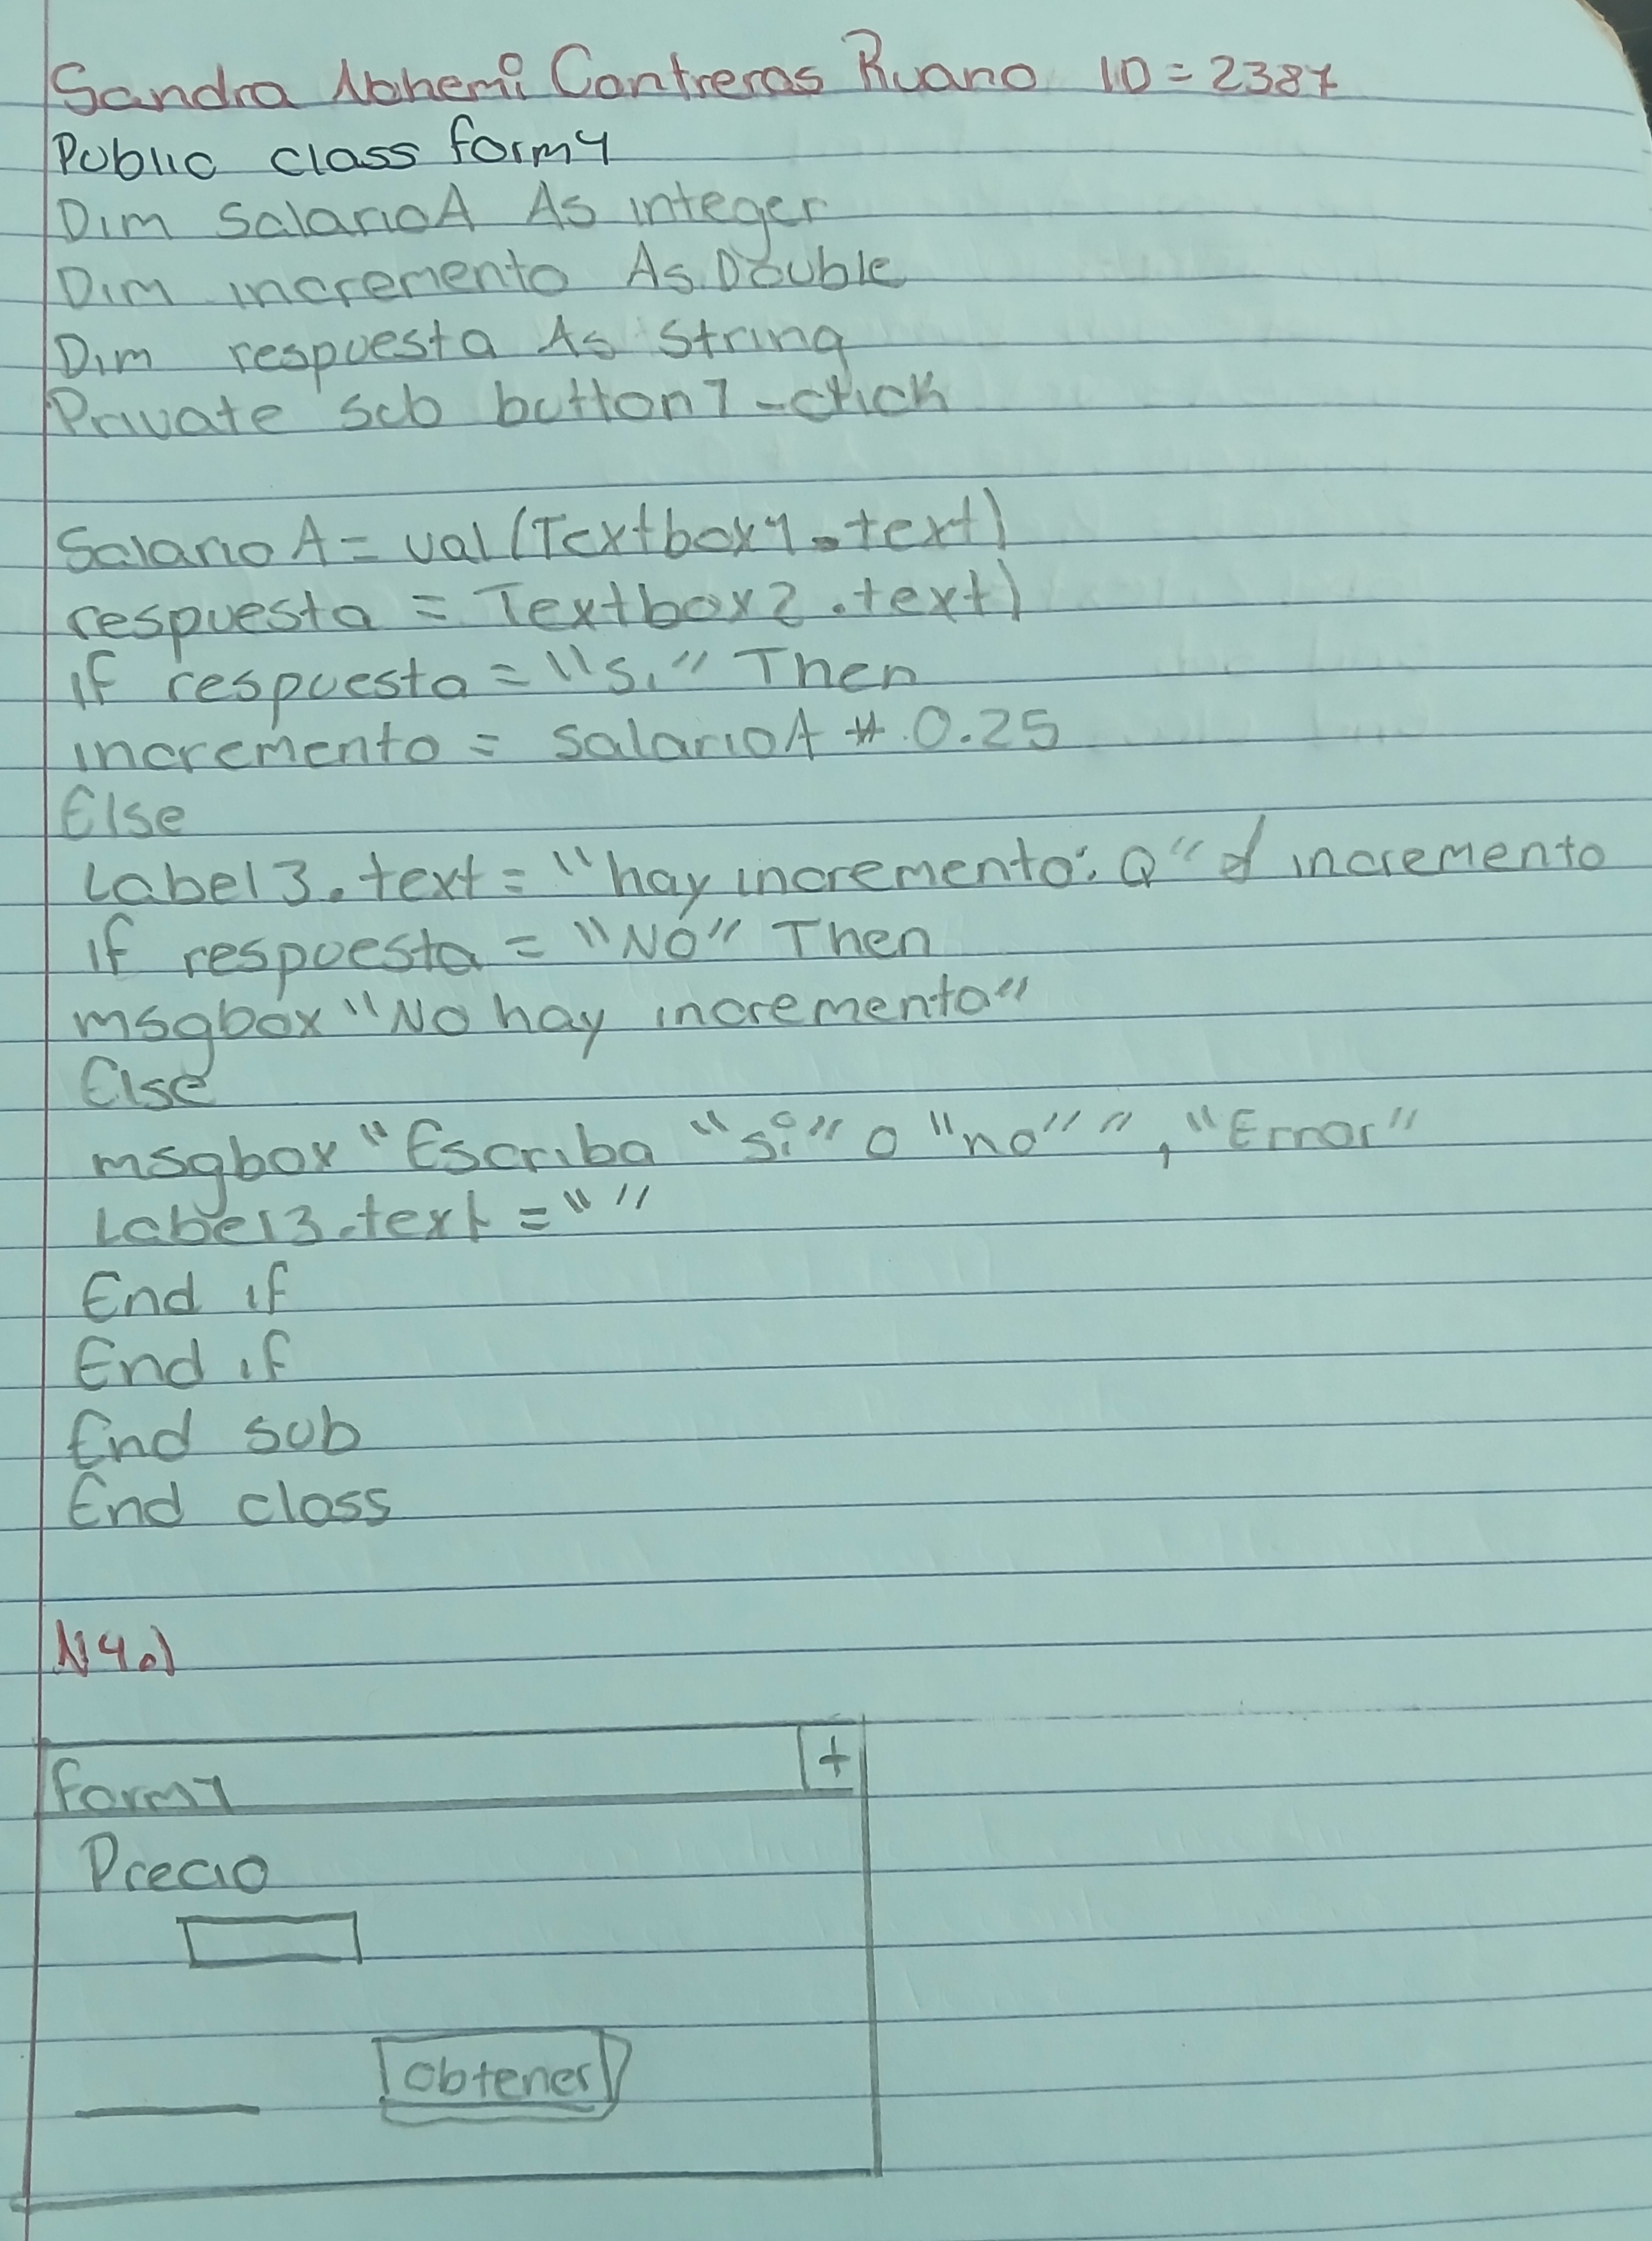 Sandra Nohemi Contreras Ruano ID = 2387
Public class form1
Dim SalarioA As integer
Dim incremento As Double
Dim respuesta As String
Private sub button1-click
SalarioA = val(Textbox1.text)
respuesta = Textbox2.text)
if respuesta = "si" Then
incremento = salarioA * 0.25
Else
Label3.text = "hay incremento: Q" & incremento
if respuesta = "No" Then
msgbox "No hay incremento"
Else
msgbox "Escriba "si" o "no"", "Error"
Label3.text = ""
End if
End if
End sub
End class
N4.)
form1 +
Precio
obtener